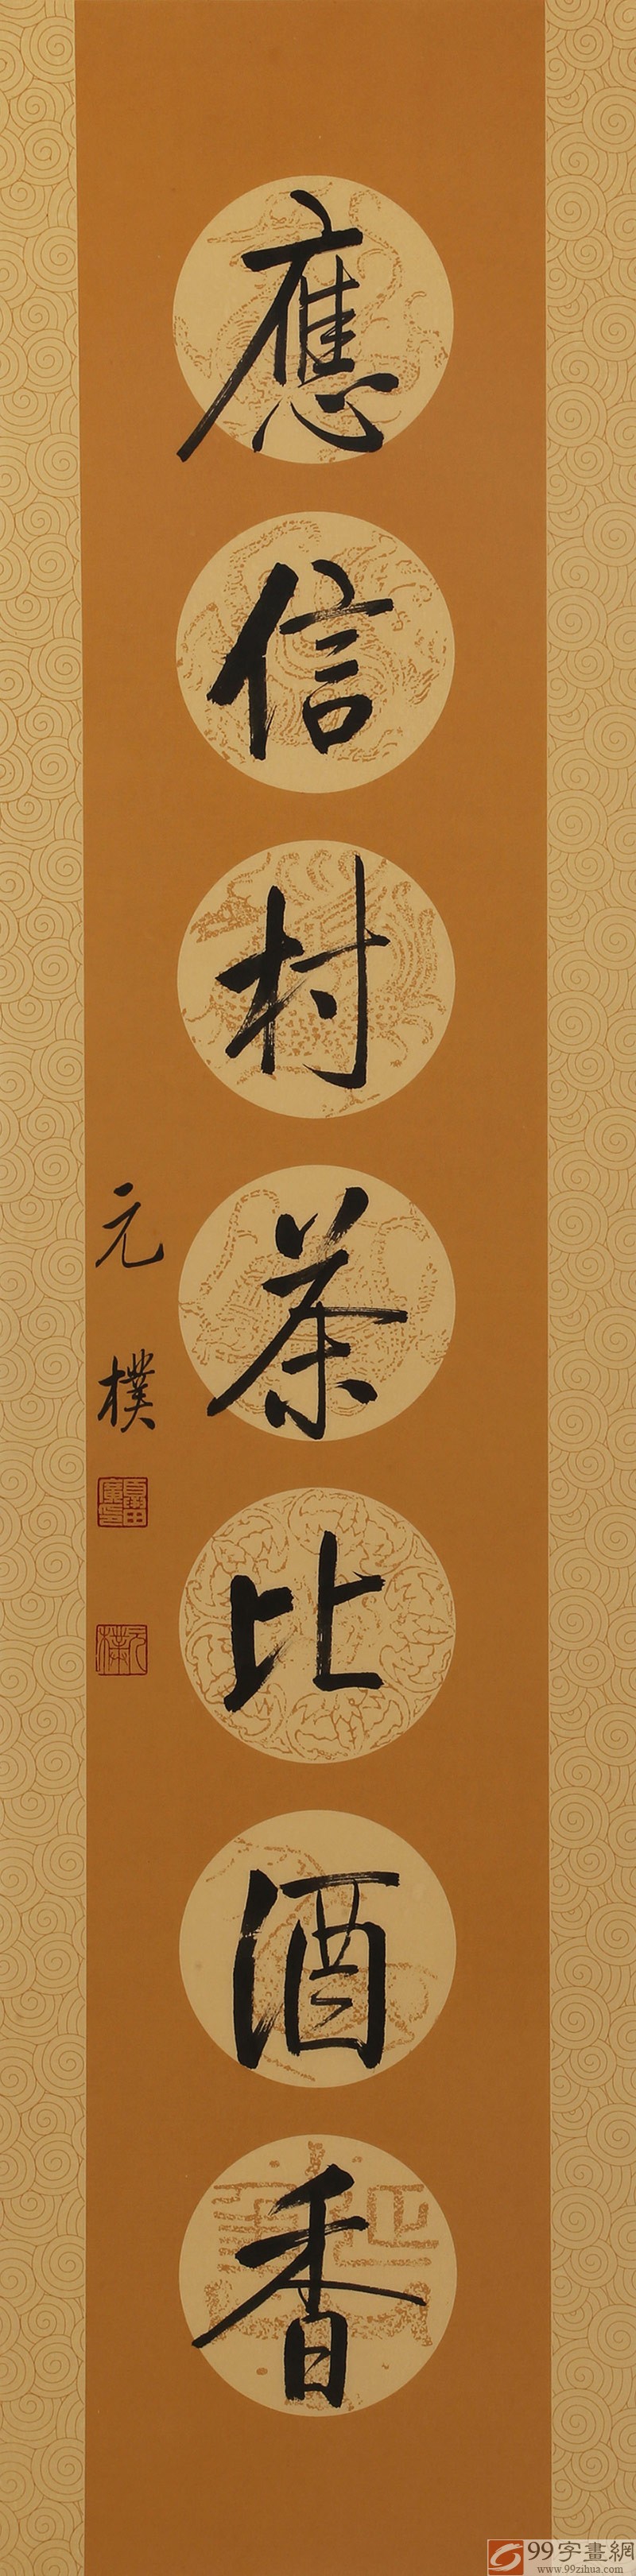 應信村茶比酒香
元樸
元樸
99字畫網
www.99zihua.com